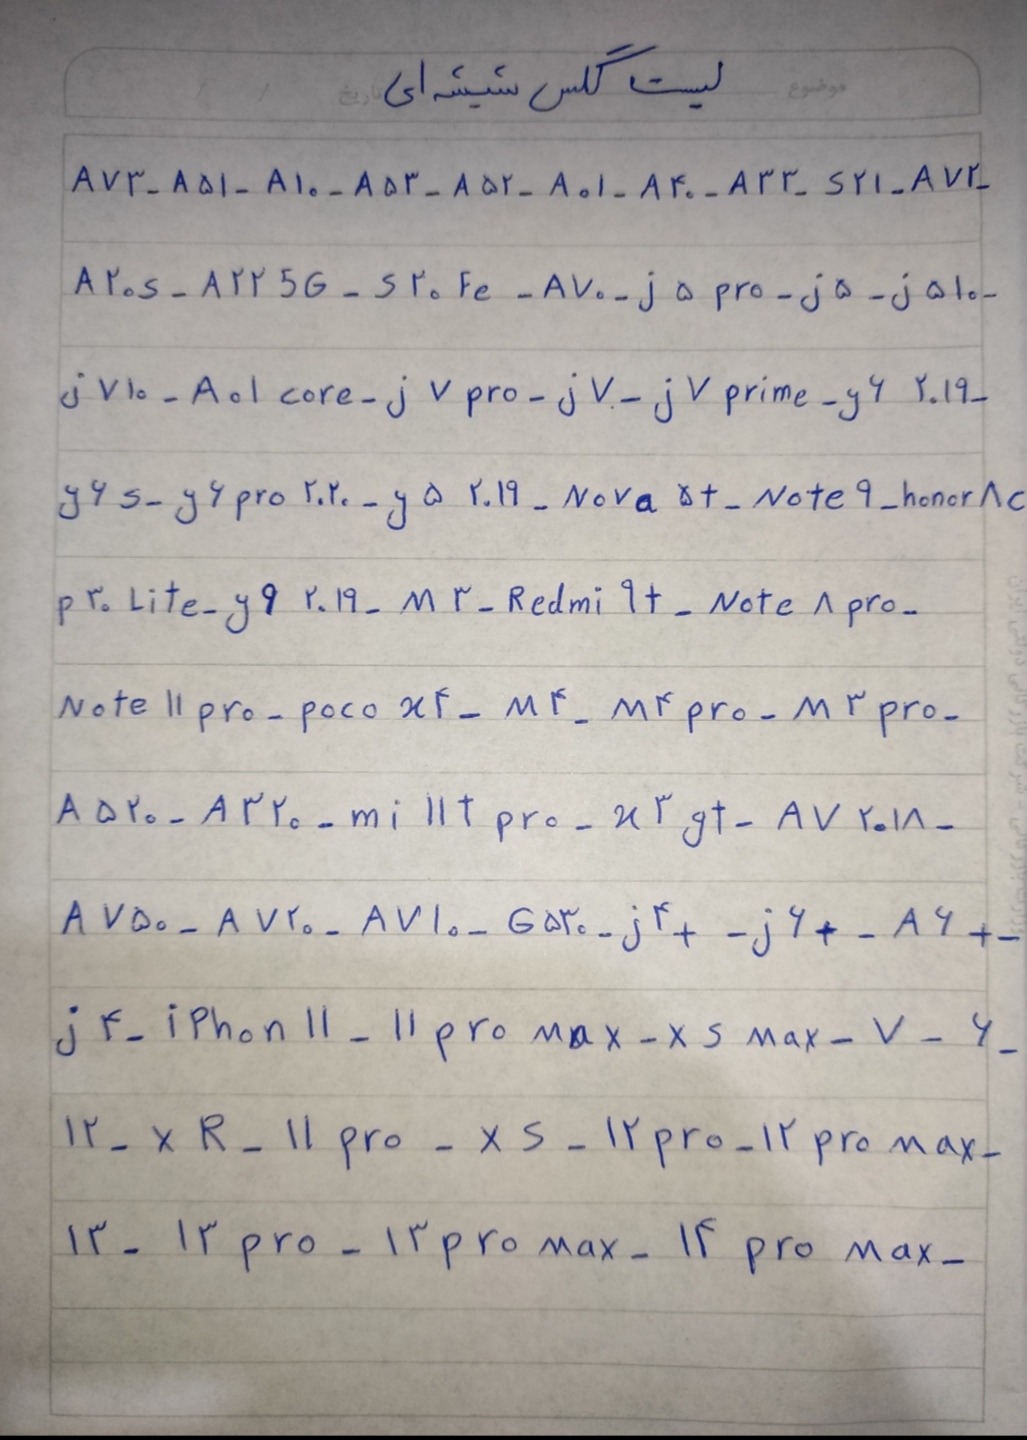 لیست گلس شیشه ای
موضوع تاریخ / /
A۷۳_ A۵۱_ A۱۰_ A۵۳_ A۵۲_ A۰۱_ A۴۰_ A۳۳_ S۲۱_ A۷۲_
A۲۰s_ A۲۲ 5G _ S۲۰ Fe _ A۷۰_ j ۵ pro _ j۵ _ j۵۱۰_
j۷۱۰ _ A۰۱ core_ j ۷ pro _ j۷_ j۷ prime _ y۶ ۲۰۱۹_
y۶s_ y۶ pro ۲۰۲۰ _ y۵ ۲۰۱۹ _ Nova ۵t _ Note ۹ _ honor ۸c
p۳۰ Lite_ y۹ ۲۰۱۹_ M۳_ Redmi ۹t _ Note ۸ pro_
Note ۱۱ pro _ poco x۴_ M۴_ M۴ pro _ M۳ pro_
A۵۲۰_ A۳۲۰_ mi ۱۱t pro _ x۳ gt_ A۷ ۲۰۱۸_
A۷۵۰_ A۷۲۰_ A۷۱۰_ G۵۳۰_ j۴+ _ j۶+ _ A۶+_
j۴_ iPhon ۱۱ _ ۱۱ pro max _ x s max _ ۷ _ ۶_
۱۲_ x R _ ۱۱ pro _ x s _ ۱۲ pro _ ۱۲ pro max_
۱۳_ ۱۳ pro _ ۱۳ pro max_ ۱۴ pro max_